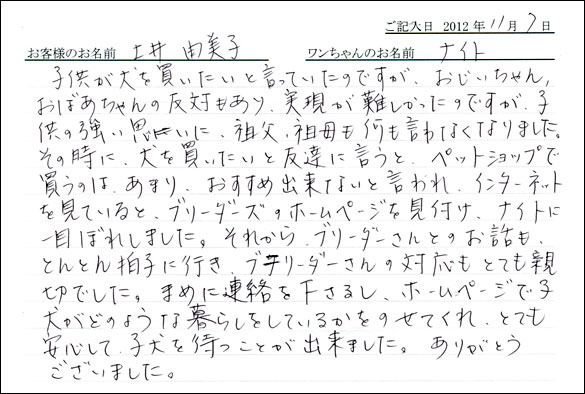 ご記入日 2012年11月7日
お客様のお名前 土井 由美子 ワンちゃんのお名前 ナイト
子供が犬を買いたいと言っていたのですが、おじいちゃん,
おばあちゃんの反対もあり、実現が難しかったのですが、子
供の強い思いに、祖父、祖母も何も言わなくなりました。
その時に、犬を買いたいと友達に言うと、ペットショップで
買うのは、あまり、おすすめ出来ないと言われ、インターネット
を見ていると、ブリーダーズのホームページを見付け、ナイトに
一目ぼれしました。それから、ブリーダーさんとのお話も
とんとん拍子に行き、ブリーダーさんの対応もとても親
切でした。まめに連絡を下さるし、ホームページで子
犬がどのような暮らしをしているかをのせてくれ、とても
安心して、子犬を待つことが出来ました。ありがとう
ございました。